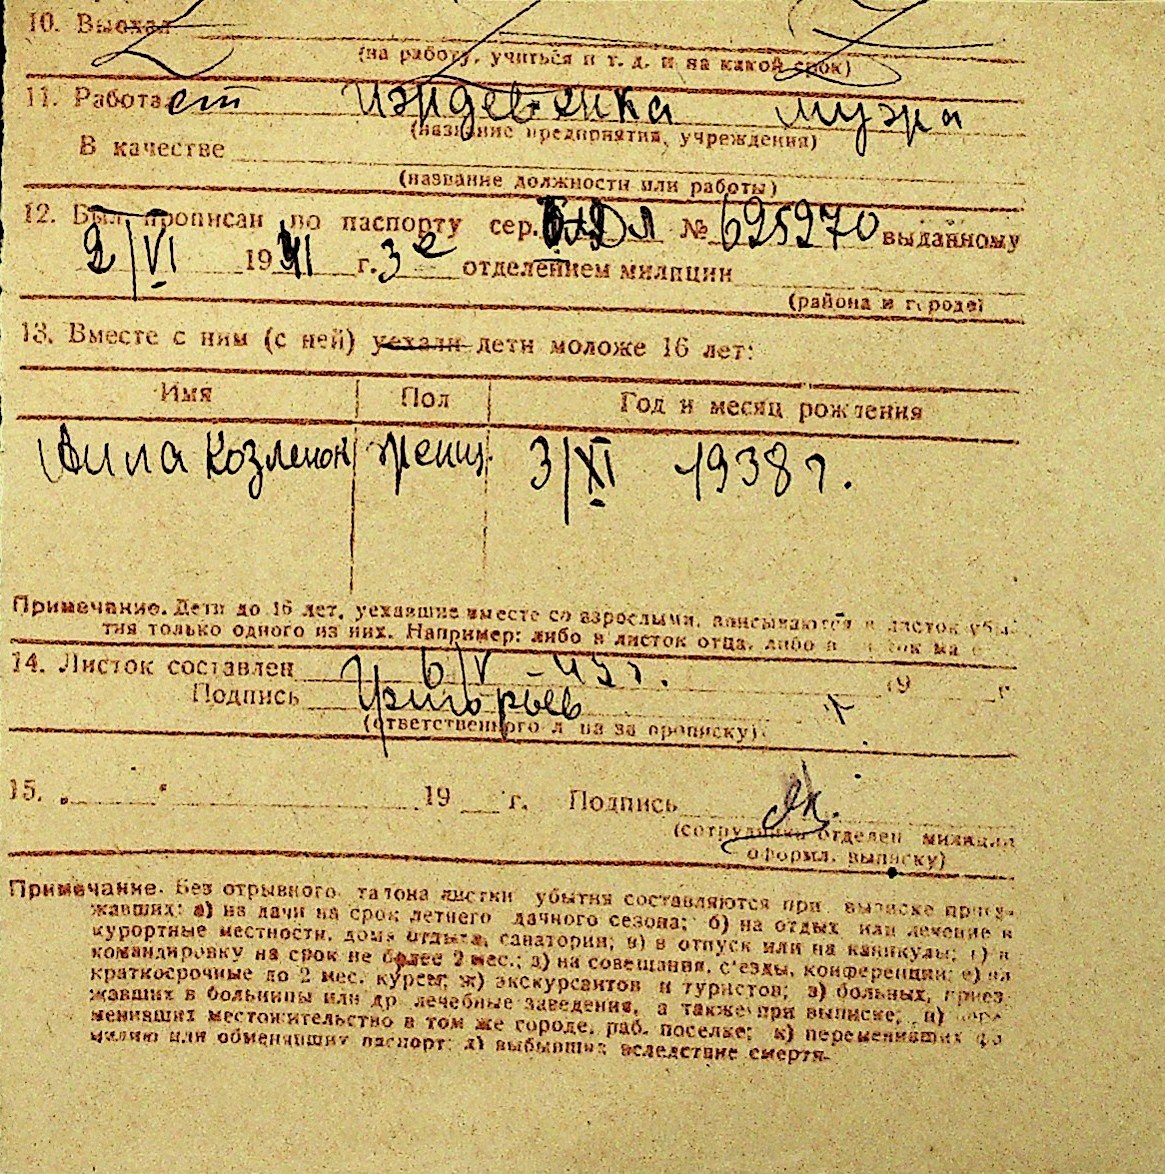 10. Выехал
(на работу, учиться и т. д. и на какой срок)
11. Работает иждевенка муэра
(название предприятия, учреждения)
В качестве
(название должности или работы)
12. Был прописан по паспорту сер. № 625270 выданному
2/VI 1941 г. 3е отделением милиции
(района и города)
13. Вместе с ним (с ней) уехали дети моложе 16 лет:
Имя Пол Год и месяц рождения
Козленок женщ. 3/XI 1938 г.
Примечание. Дети до 16 лет, уехавшие вместе со взрослыми, вписываются в листок убы-
тия только одного из них. Например: либо в листок отца, либо в
14. Листок составлен 6/V-45 г. 19 г.
Подпись Григорьев
(ответственного лица за прописку)
15. „ " 19 г. Подпись
(сотрудника отделен милиции
оформл. выписку)
Примечание. Без отрывного талона листки убытия составляются при выписке приез-
жавших: а) на дачи на срок летнего дачного сезона; б) на отдых или лечение в
курортные местности, дома отдыха, санатории; в) в отпуск или на каникулы; г) в
командировку на срок не более 2 мес.; д) на совещания, съезды, конференции; е) на
краткосрочные до 2 мес. курсы; ж) экскурсантов и туристов; з) больных, приез-
жавших в больницы или др лечебные заведения, а также при выписке; и) пере-
менивших местожительство в том же городе, раб. поселке; к) переменивших фа-
милию или обменявших паспорт; л) выбывших вследствие смерти.